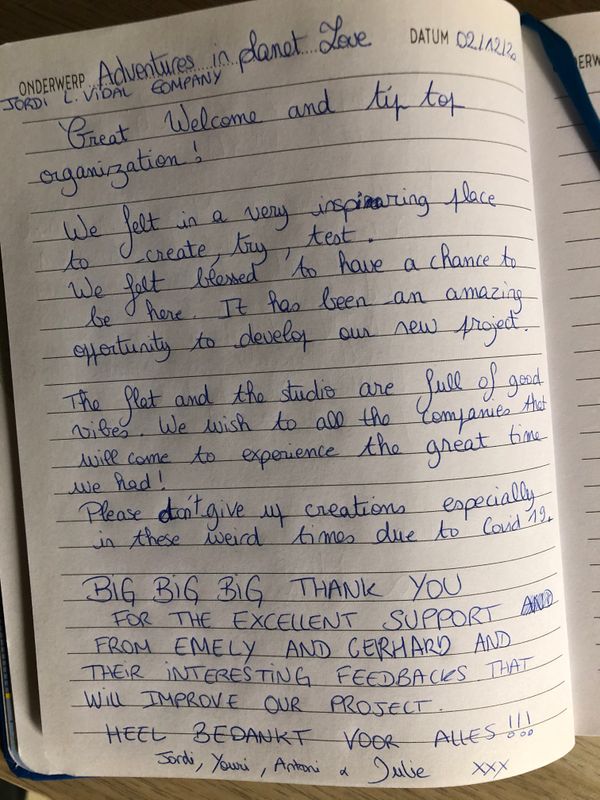 ONDERWERP Adventures in planet Love DATUM 02/12/20
JORDI L. VIDAL COMPANY
Great Welcome and tip top
organization!
We felt in a very inspiraring place
to create, try, test.
We felt blessed to have a chance to
be here. It has been an amazing
opportunity to develop our new project.
The flat and the studio are full of good
vibes. We wish to all the companies that
will come to experience the great time
we had!
Please don't give up creations especially
in these weird times due to Covid 19.
BIG BIG BIG THANK YOU
FOR THE EXCELLENT SUPPORT
FROM EMELY AND GERHARD AND
THEIR INTERESTING FEEDBACKS THAT
WILL IMPROVE OUR PROJECT.
HEEL BEDANKT VOOR ALLES!!!
Jordi, Youri, Antoni & Julie XXX